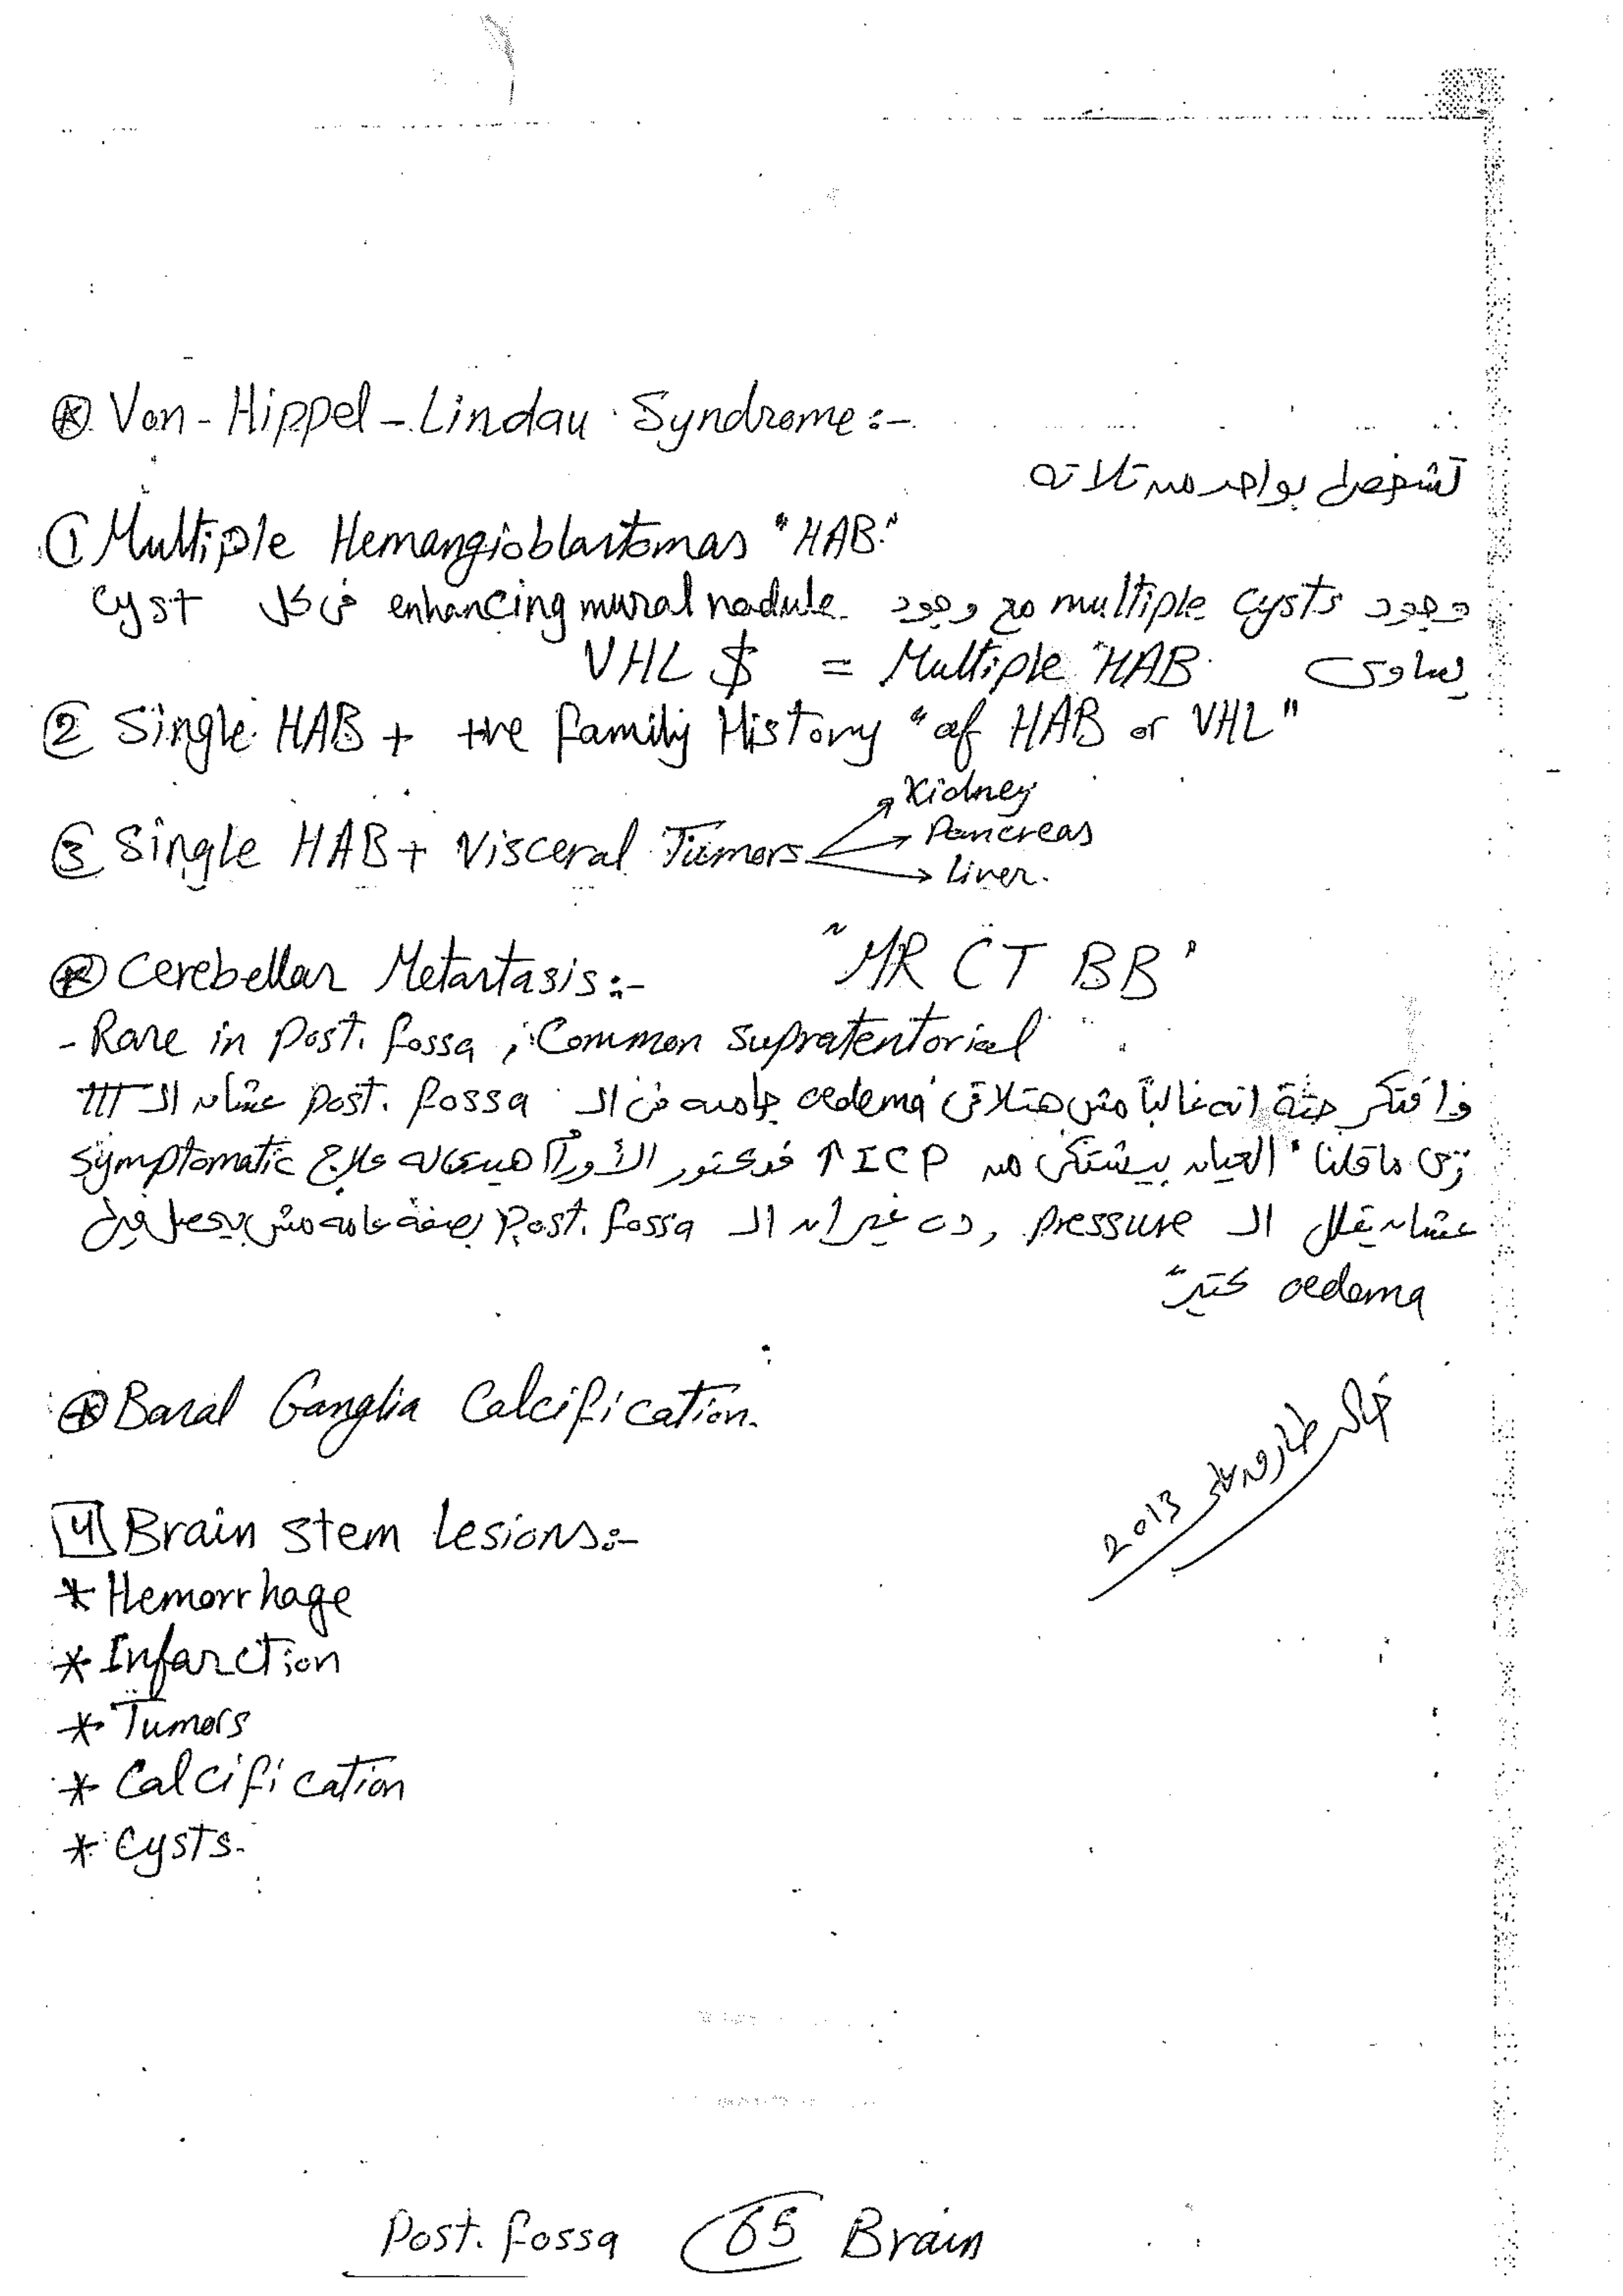 ⊛ Von-Hippel-Lindau Syndrome:-
تشخص بواحد من تلاته
① Multiple Hemangioblastomas "HAB"
وجود multiple cysts مع وجود enhancing mural nodule فى كل cyst
يساوى Multiple HAB = VHL $
② Single HAB + +ve family History "of HAB or VHL"
③ Single HAB + Visceral Tumors
Kidney
Pancreas
Liver.
⊛ Cerebellar Metastasis:- "MR CT BB"
- Rare in post. fossa ; Common supratentorial
وافتكر حتة انه غالباً مش هتلاقى oedema جامده فى الـ post. fossa عشان الـ ttt
زى ما قلنا "العيان بيشتكى من ↑ ICP فدكتور الأورام هيدى له علاج symptomatic
عشان يقلل الـ pressure , ده غير ان الـ post. fossa بصفة عامه مش بيحصل فيها
oedema كتير"
⊛ Basal Ganglia Calcification.
2013
4 Brain stem Lesions:-
* Hemorrhage
* Infarction
* Tumors
* Calcification
* Cysts.
Post. fossa 65 Brain